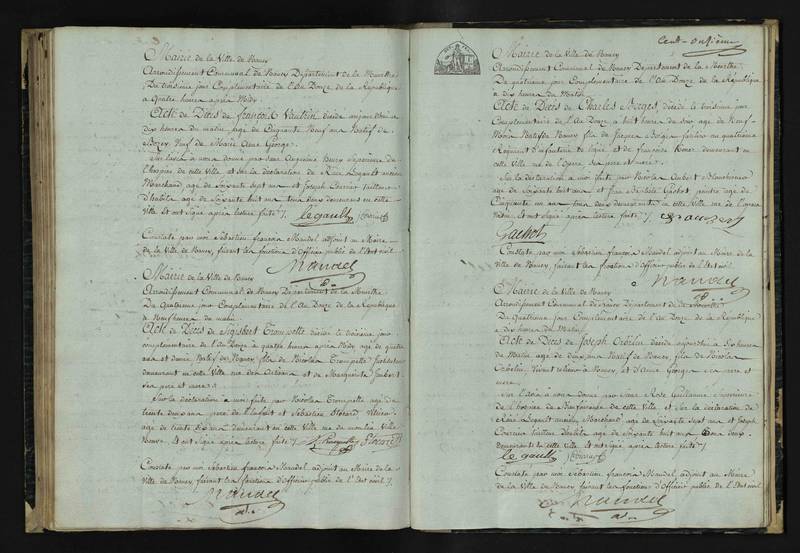 Mairie de la Ville de Nancy
Arrondissement Communal de Nancy Département de la Meurthe
Du troisieme jour Complementaire de l'An Douze de la République
a quatre heures après Midy
Acte de Décès de françois Vautrin décédé aujourdhuy a
dix heures du matin, age de Cinquante Neuf ans Natif de
veuf de Marie Anne George
Sur l'avis a nous donné par Supérieure de
l'hospice de cette Ville et sur la déclaration de René Legault ancien
Marchand, age de Soixante sept ans et Joseph tailleur
d'habits age de Soixante huit ans tous deux demeurans en cette
Ville et ont signé après lecture faite /.
le gault
Constaté par moi Sébastien françois Mandel adjoint au Maire
de la Ville de Nancy, faisant les fonctions d'Officier public de l'Etat civil
Mandel
Mairie de la Ville de Nancy
Arrondissement Communal de Nancy Département de la Meurthe
Du quatrieme jour Complementaire de l'An Douze de la République
a Neuf heures du matin
Acte de Décès de Sigisbert Trompette décédé le troisieme jour
complementaire de l'an Douze à quatre heures après Midy age de quatre
ans et demie Natif de Nancy fils de Nicolas Trompette
demeurant en cette Ville rue des et de Marguerite
ses pere et mere
Sur la déclaration a moi faite par Nicolas Trompette age de
trente deux ans pere de l'enfant et Sébastien
age de trente demeurant en cette Ville rue du moulin Ville
Neuve, et ont signé après lecture faite /.
Constaté par moi Sébastien françois Mandel adjoint au Maire de la
Ville de Nancy, faisant les fonctions d'Officier public de l'Etat civil /.
Mandel
Cent-onzième
Mairie de la Ville de Nancy
Arrondissement Communal de Nancy Département de la Meurthe
Du quatrieme jour Complementaire de l'An Douze de la République
a dix heures du Matin
Acte de Décès de Charles décédé le troisieme jour
Complementaire de l'An Douze a huit heures du soir age de Neuf
Mois Natif de Nancy fils de Jacques au quatrieme
Régiment d'infanterie de ligne et de françoise demeurant en
cette Ville rue de l'Opera ses pere et mere
Sur la déclaration a moi faite par Nicolas Aubert
age de Soixante huit ans et Gachot peintre age de
Cinquante un ans tous deux demeurans en cette Ville rue de l'opera
et ont signé après lecture faite /.
Gachot
Constaté par moi Sébastien françois Mandel adjoint au Maire de la
Ville de Nancy, faisant les fonctions d'Officier public de l'Etat civil
Mandel
Mairie de la Ville de Nancy
Arrondissement Communal de Nancy Département de la Meurthe
Du quatrieme jour Complementaire de l'An Douze de la République
a dix heures du Matin
Acte de Décès de Joseph décédé aujourdhui a Six heures
du Matin age de deux ans Natif de Nancy, fils de Nicolas
a Nancy, et d'Anne George ses pere et
mere
Sur l'avis a nous donné par Soeur Rose Guillaume Supérieure
de l'hospice de Bienfaisance de cette Ville et Sur la déclaration de
René Legault ancien Marchand age de Soixante sept ans et Joseph
tailleur d'habits age de Soixante huit ans tous deux
demeurans en cette Ville et ont signé après lecture faite /.
le gault
Constaté par moi Sébastien françois Mandel adjoint au Maire
de la Ville de Nancy, faisant les fonctions d'Officier public de l'Etat civil
Mandel